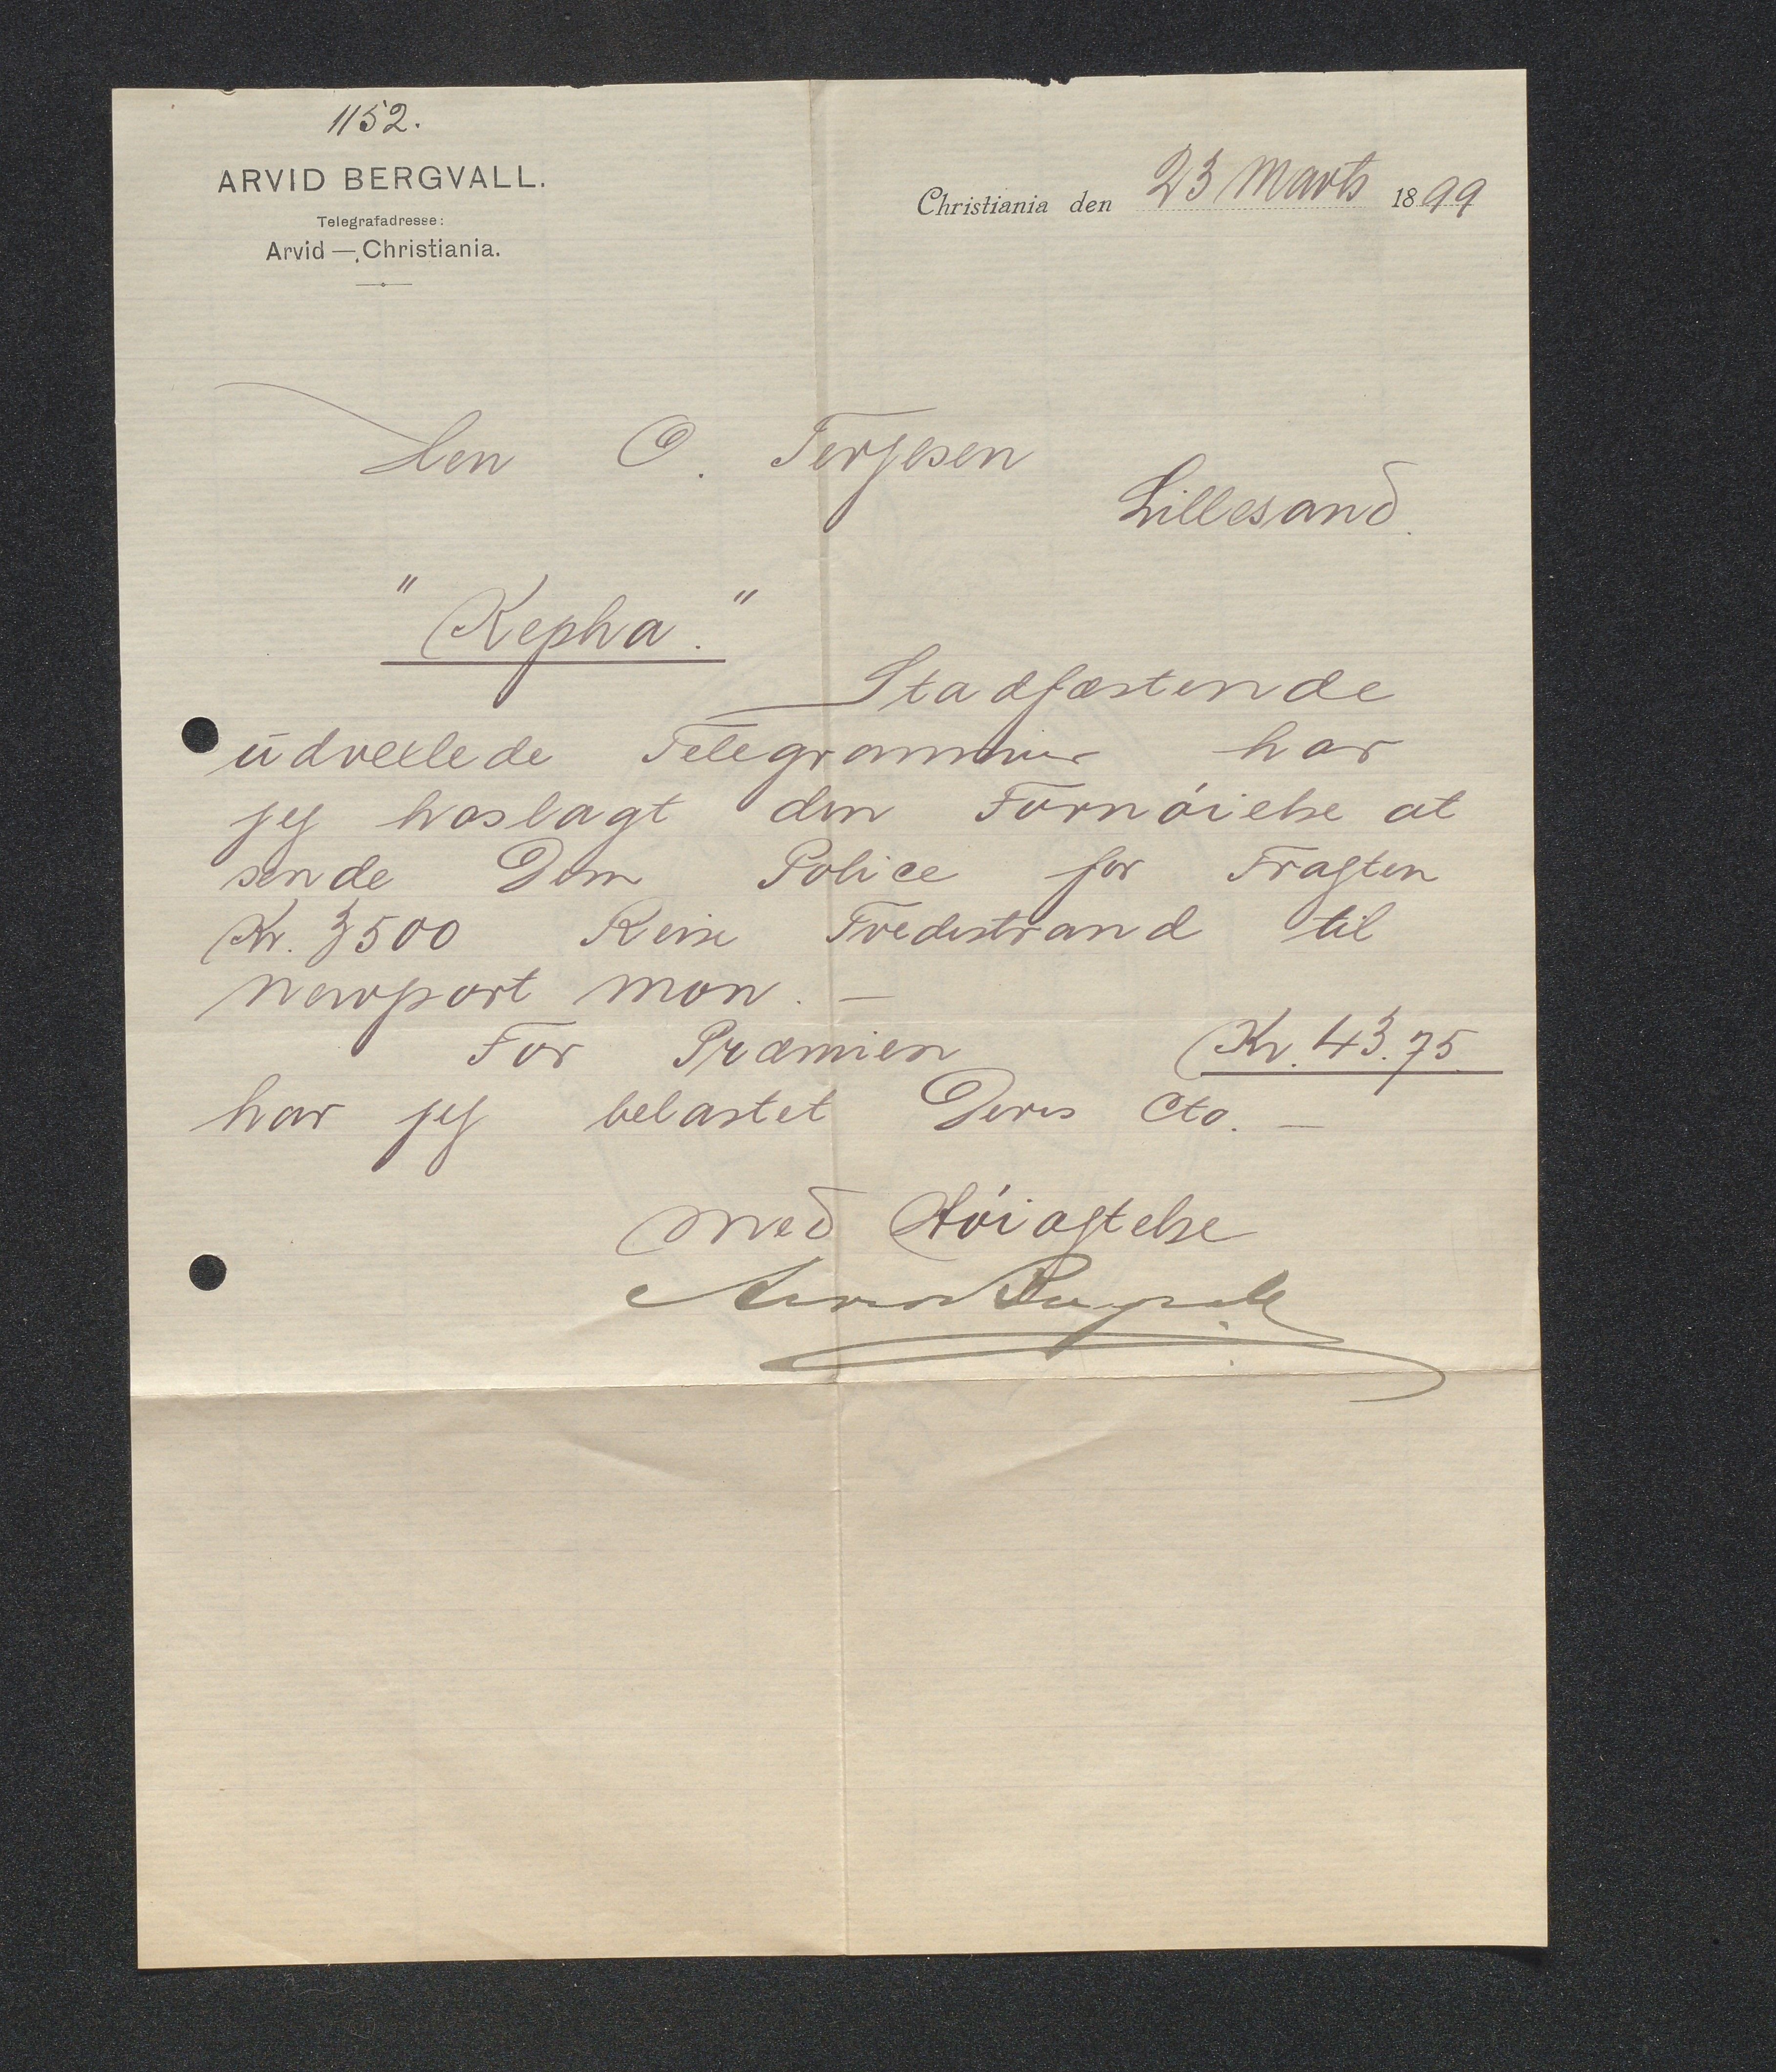 1152.
ARVID BERGVALL.
Telegrafadresse:
Arvid —, Christiania.
Christiania den 23 Marts 1899
Herr O. Terjesen
Lillesand.
"Kepha."
Stadfæstende
udvexlede Telegrammer har
jeg hoslagt den Fornöielse at
sende Dem Police for Fragten
Kr. 3500 Reise Tvedestrand til
Newport Mon. —
For Præmien Kr. 43.75
har jeg belastet Deres Cto. —
Med Höiagtelse
Arvid Bergvall